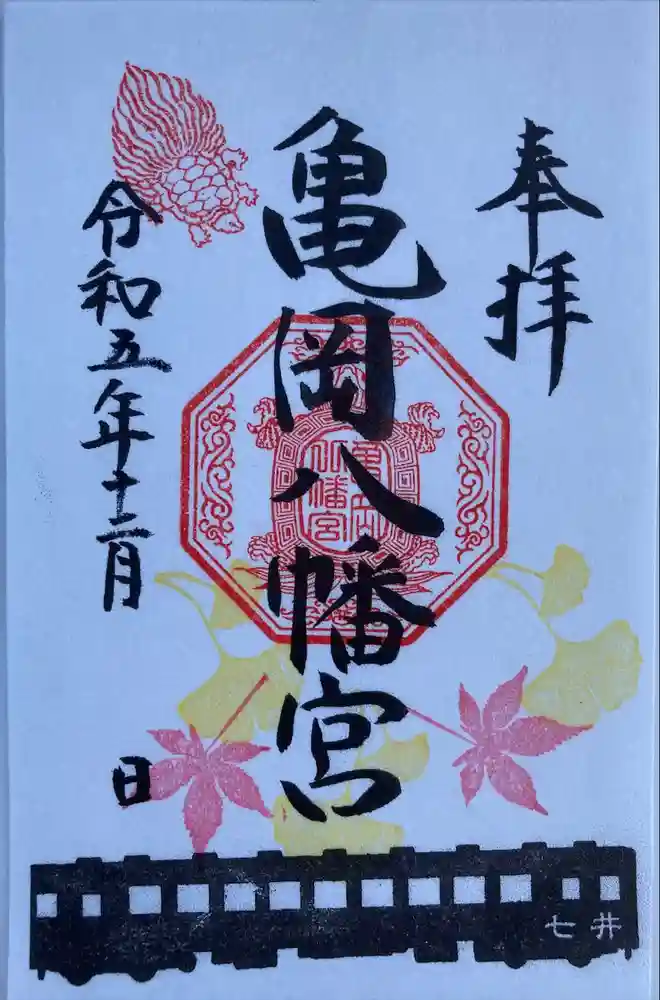 奉拝
亀岡八幡宮
亀岡八幡宮
令和五年十二月
日
七井